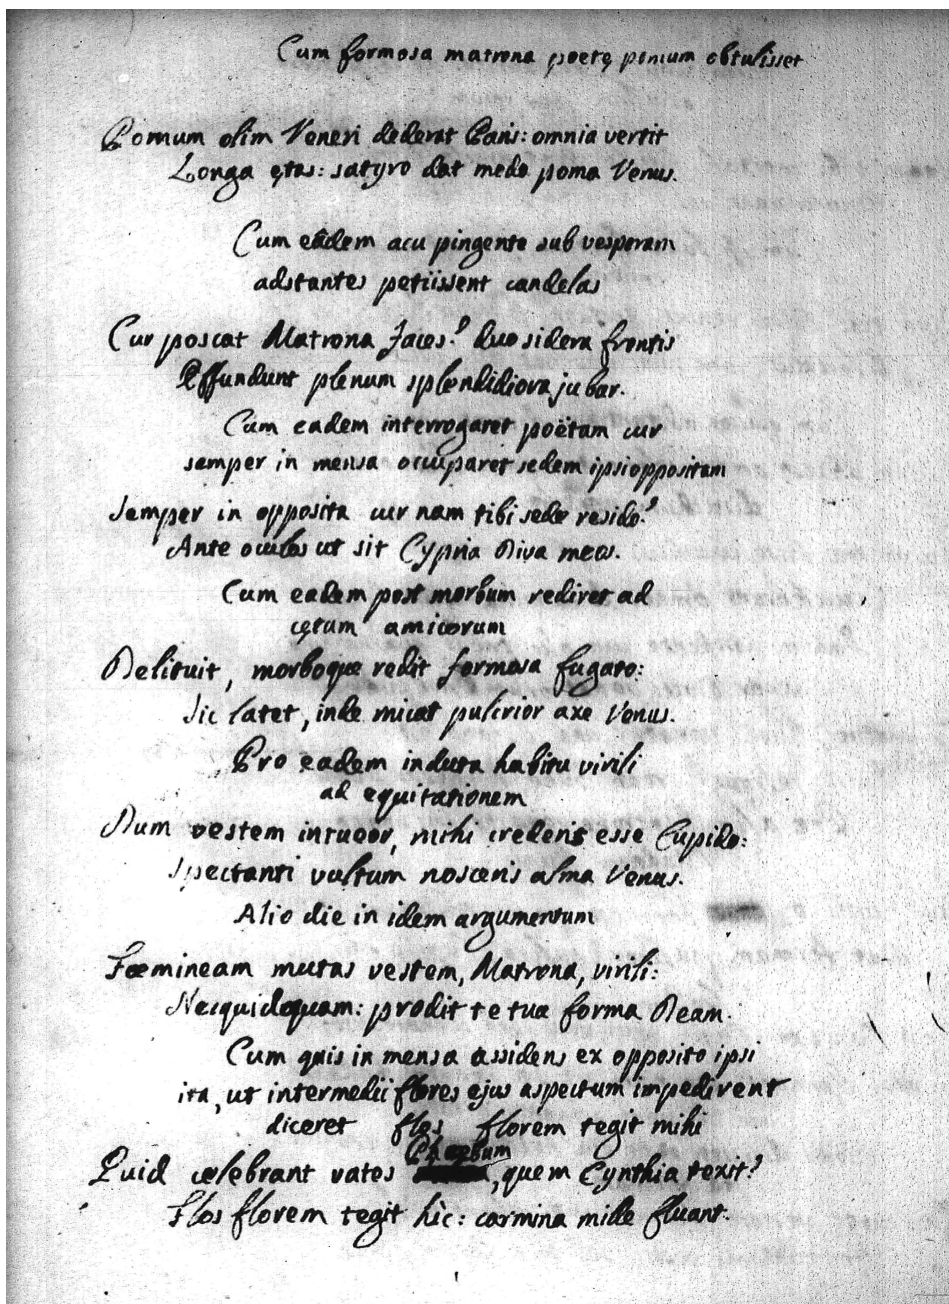 Cum formosa matrona poetę pomum obtulisset
Pomum olim Veneri dederat Paris: omnia vertit
Longa ętas: satyro dat modo poma Venus.
Cum eadem acu pingente sub vesperam
adstantes petiissent candelas
Cur poscat Matrona faces? duo sidera frontis
Effundunt plenum splendidiora jubar.
Cum eadem interrogaret poëtam cur
semper in mensa occuparet sedem ipsi oppositam
Semper in opposita cur nam tibi sede resido?
Ante oculos ut sit Cypria Diva meos.
Cum eadem post morbum rediret ad
cętum amicorum
Delituit, morboque redit formosa fugato:
Sic latet, inde micat pulcrior axe Venus.
Pro eadem induta habitu virili
ad equitationem
Dum vestem intueor, mihi crederis esse Cupido:
Spectanti vultum nosceris alma Venus.
Alio die in idem argumentum
Fœmineam mutas vestem, Matrona, virili:
Necquidquam: prodit te tua forma Deam.
Cum quis in mensa assidens ex opposito ipsi
ita, ut intermedii flores ejus aspectum impedirent
diceret flos florem tegit mihi
Quid celebrant vates Phœbum, quem Cynthia texit?
Flos florem tegit hîc: carmina mille fluant.